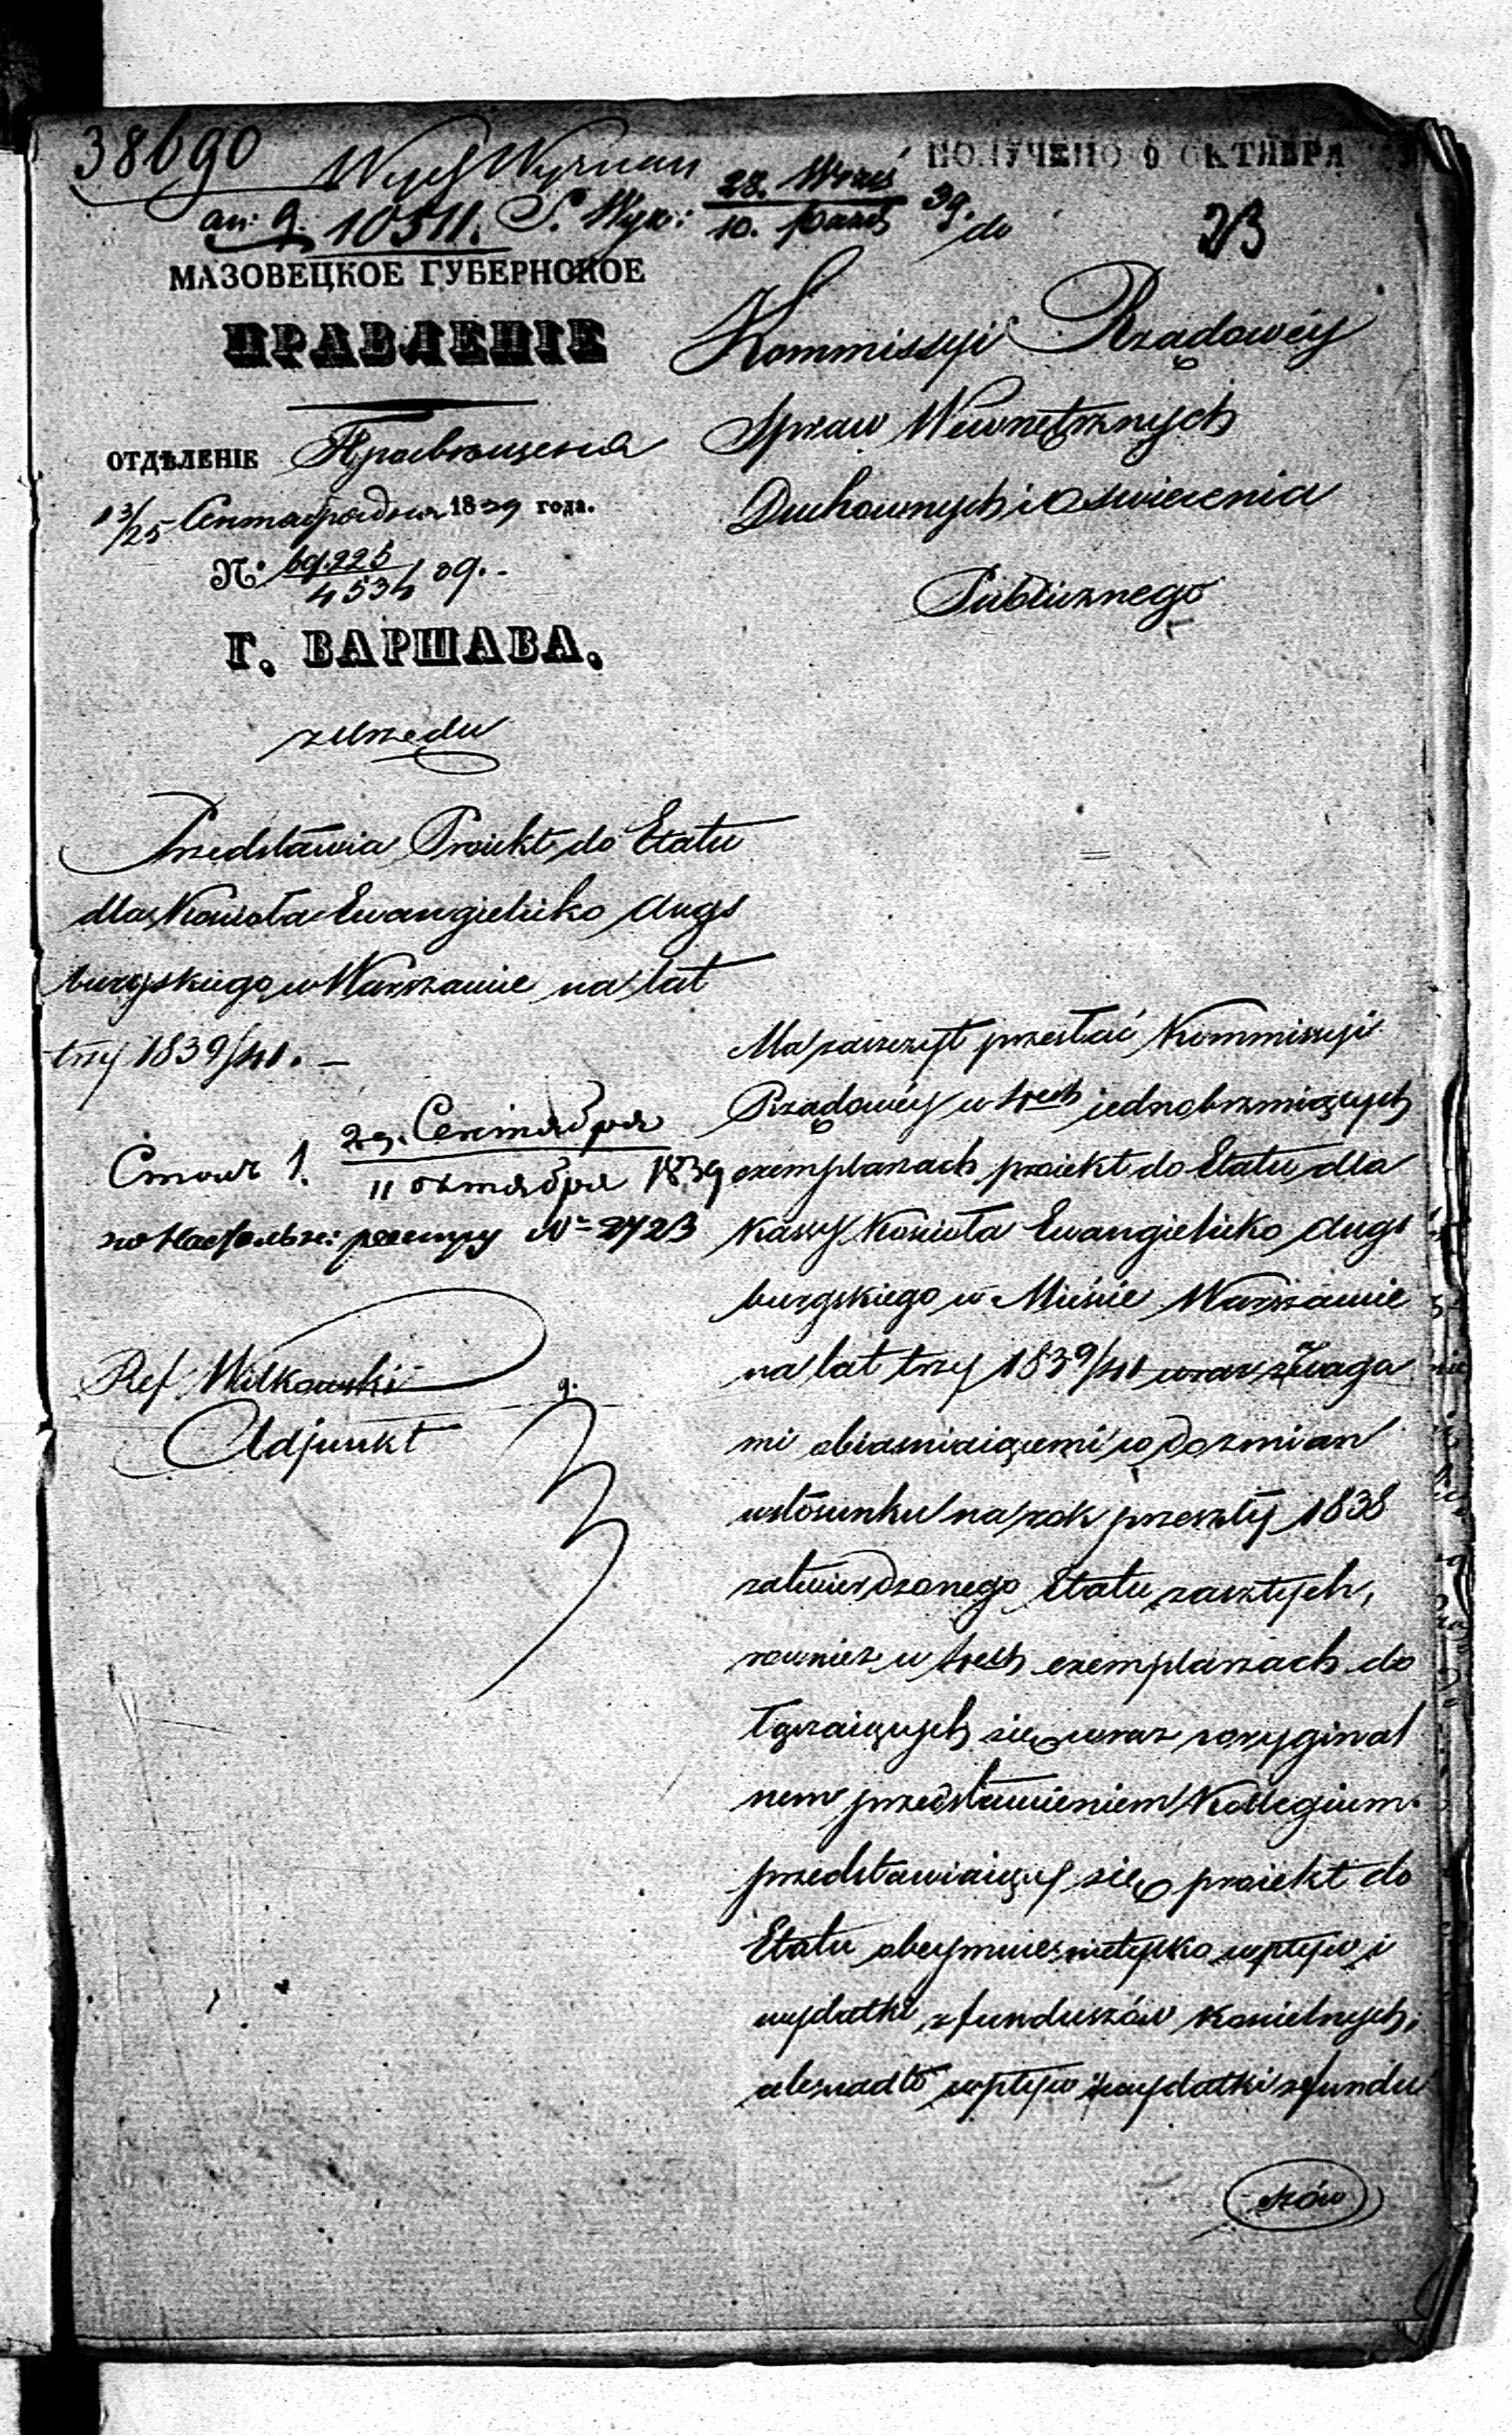 38690
ПОЛУЧЕНО 9 ОКТЯБРЯ
an: 9. 10511. S. Wyzn: 28. Wrześ / 10. Paźd 39. do
23
МАЗОВЕЦКОЕ ГУБЕРНСКОЕ
ПРАВЛЕНІЕ
ОТДѢЛЕНІЕ Просвѣщенія
13/25 Сентября дня 1839 года.
N.
Г. ВАРШАВА.
z Urzędu
Przedstawia Proiekt do Etatu
dla Kościoła Ewangielicko Augs
burgskiego w Warszawie na lat
trzy 1839/41. –
29. Сентября / 11 октября 1839
N= 2723
Ref Wilkowski
Adjunkt
Kommissyi Rządowéy
Spraw Wewnętrznych
Duchownych i Oswiecenia
Publicznego
Ma zaszczyt przesłać Kommissyi
Rządowéy w trzech iednobrzmiących
exemplarzach proiekt do Etatu dla
Kassy Kościoła Ewangielicko Augs
burgskiego w Mieście Warszawie
na lat trzy 1839/41 wraz z uwaga
mi obiasniaiącemi powód zmian
w stósunku na rok przeszły 1838
zatwierdzonego Etatu zaszłych,
rownież w trzech exemplarzach do
łączaiących się wraz z oryginal
nem przedstawieniem Kollegium.
przedstawiaiący się proiekt do
Etatu obeymuie nietylko wpływ i
wydatki z funduszów Kościelnych,
ale nadto wpływ i wydatki z fundu
szów